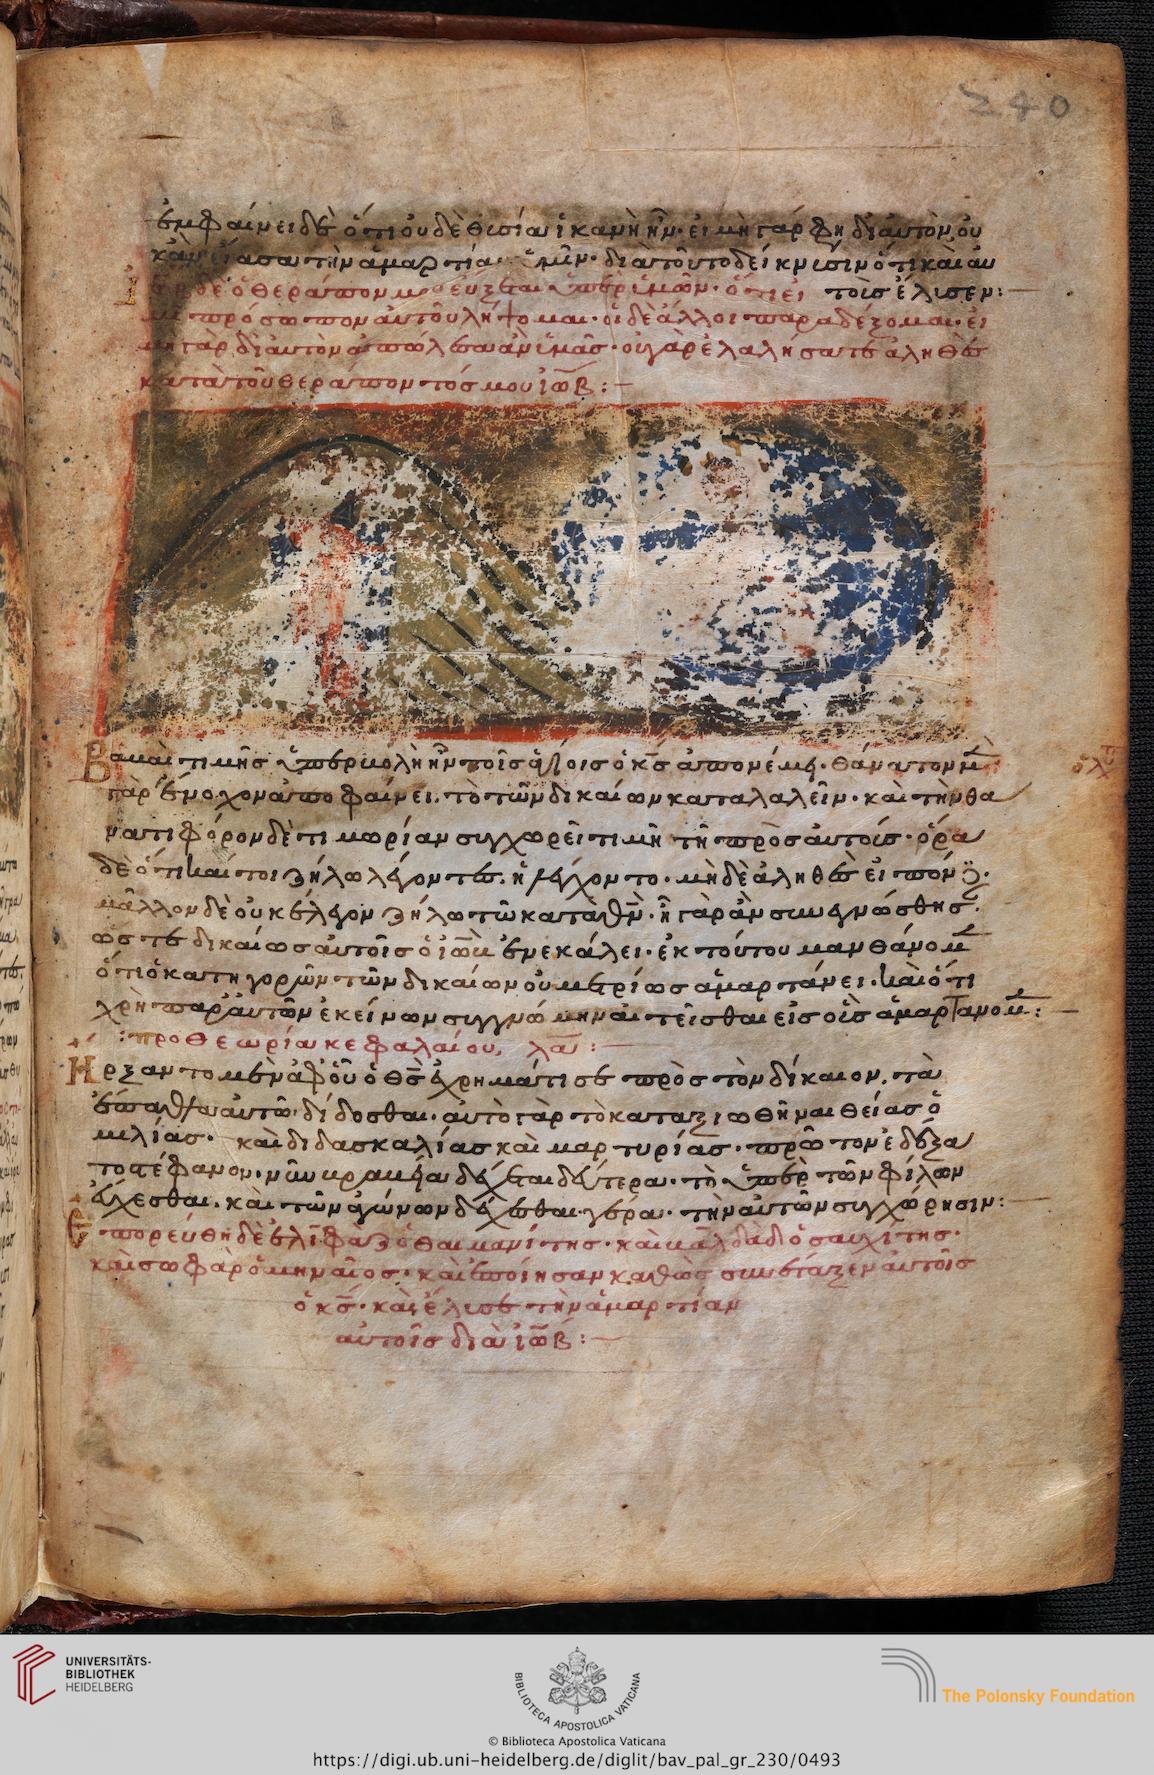 240
ἐμφαίνει δὲ ὅτι οὐδὲ θυσία ἱκανὴ ἦν· εἰ μὴ γάρ φη δι αὐτὸν οὐ
τὴν ἁμαρτίαν ὑμῖν· διὰ τοῦτο δείκνυσιν ὅτι καὶ αὐ
τοῖς ἔλυσεν:
Ἰὼβ δὲ ὁ θεράπων μου εὔξεται ὑπὲρ ὑμῶν· ὅτι εἰ
μὴ πρόσωπον αὐτοῦ λήψομαι· εἰ
μὴ γὰρ δι αὐτὸν ἀπώλεσα ἂν ὑμᾶς· οὐ γὰρ ἐλαλήσατε ἀληθὲς
κατὰ τοῦ θεράποντός μου ἰώβ:
Βαβαὶ τιμῆς ὑπερβολὴ ἣν τοῖς ἁγίοις ὁ κς ἀπονέμει· θανάτου μ
γὰρ ἔνοχον ἀποφαίνει τὸ τῶν δικαίων καταλαλεῖν· καὶ τὴν θα
νατιφόρον δὲ τιμωρίαν συγχωρεῖ τιμῆ τῆ πρὸς αὐτούς· ὅρα
δὲ ὅτι καίτοι ζήλω λέγοντες· μὴ δὲ ἀληθὲς εἰπόν
μᾶλλον δὲ οὐκ ἔλεγον ζήλω τῶ κατὰ θν·
ὥστε δικαίως αὐτοῖς ὁ ἰὼβ ἐνεκάλει· ἐκ τούτου μανθάνομ
ὅτι ὁ κατηγορῶν τῶν δικαίων οὐ μετρίως ἁμαρτάνει· καὶ ὅτι
χρὴ παρ αὐτῶν ἐκείνων συγγνώμην αἰτεῖσθαι εἰς οὓς ἁμαρτάνομ:
προθεωρία κεφαλαίου λα:
Ἤρξαντο μὲν ἀφ οὗ ὁ θς ἐχρημάτισε πρὸς τὸν δίκαιον, τὰ
ἔπαθλα αὐτῶ δίδοσθαι· αὐτὸ γὰρ τὸ καταξιωθῆναι θείας ὁ
μιλίας· καὶ διδασκαλίας καὶ μαρτυρίας· πρῶτον ἐδέξα
το στέφανον· νῦν δέχεται δεύτερα· τὸ ὑπὲρ τῶν φίλων
εὔχεσθαι· καὶ τῶν ἀγώνων δέχεσθαι γέρα· τὴν αὐτῶν συγχώρησιν:
Ἐπορεύθη δὲ ἐλιφὰζ ὁ θαιμανίτης· καὶ βαλδὰδ ὁ σαυχίτης·
καὶ σωφὰρ ὁ μηναῖος· καὶ ἐποίησαν καθὼς συνέταξεν αὐτοῖς
ὁ κς· καὶ ἔλυσε τὴν ἁμαρτίαν
αὐτοῖς διὰ ἰώβ:
UNIVERSITÄTS-
BIBLIOTHEK
HEIDELBERG
BIBLIOTECA APOSTOLICA VATICANA
The Polonsky Foundation
© Biblioteca Apostolica Vaticana
https://digi.ub.uni-heidelberg.de/diglit/bav_pal_gr_230/0493